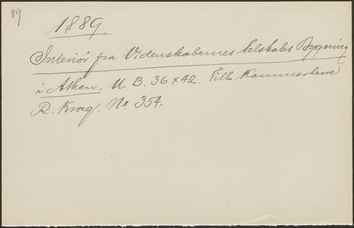 89
1889.
Interiör fra Videnskabernes Selskabs Bygning
i Athen. U. B. 36 x 42. Tilh. Kammerherre
R. Krag. No 354.